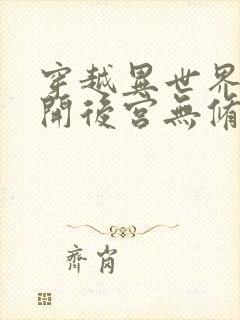 穿越異世界
開後宮無脩
齊肖